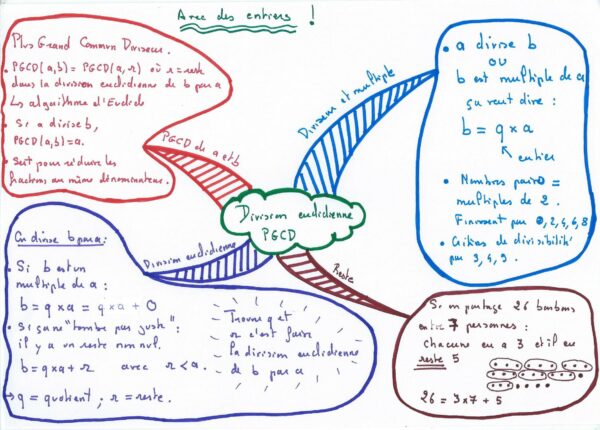 Avec des entiers !
Plus Grand Commun Diviseur.
• PGCD(a,b) = PGCD(a,r) où r = reste
dans la division euclidienne de b par a
↳ algorithme d'Euclide
• Si a divise b,
PGCD(a,b) = a.
• Sert pour réduire les
fractions au même dénominateur.
PGCD de a et b
Diviseur et multiple
• a divise b
ou
b est multiple de a
ça veut dire :
b = q × a
↖ entier
• Nombres pairs =
multiples de 2.
Finissent par 0, 2, 4, 6, 8
• Critères de divisibilité
par 3, 5, 9.
Division euclidienne
PGCD
Division euclidienne
On divise b par a :
• Si b est un
multiple de a :
b = q × a = q × a + 0
• Si ça ne "tombe pas juste" :
il y a un reste non nul.
b = q × a + r avec r < a.
→ q = quotient ; r = reste.
Trouver q et
r c'est faire
la division euclidienne
de b par a
Reste
Si on partage 26 bonbons
entre 7 personnes :
chacune en a 3 et il en
reste 5
26 = 3 × 7 + 5